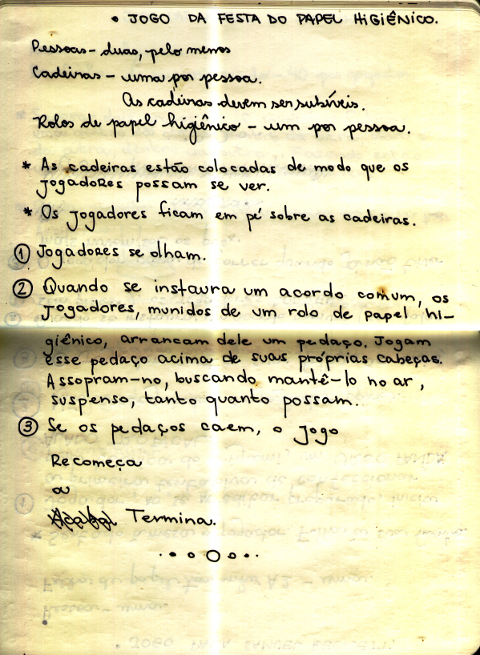 • JOGO DA FESTA DO PAPEL HIGIÊNICO.
Pessoas – duas, pelo menos
Cadeiras – uma por pessoa.
As cadeiras devem ser subíveis.
Rolos de papel higiênico – um por pessoa.
* As cadeiras estão colocadas de modo que os
jogadores possam se ver.
* Os jogadores ficam em pé sobre as cadeiras.
① Jogadores se olham.
② Quando se instaura um acordo comum, os
jogadores, munidos de um rolo de papel hi-
giênico, arrancam dele um pedaço. Jogam
esse pedaço acima de suas próprias cabeças.
Assopram-no, buscando mantê-lo no ar,
suspenso, tanto quanto possam.
③ Se os pedaços caem, o jogo
Recomeça
o
Termina.